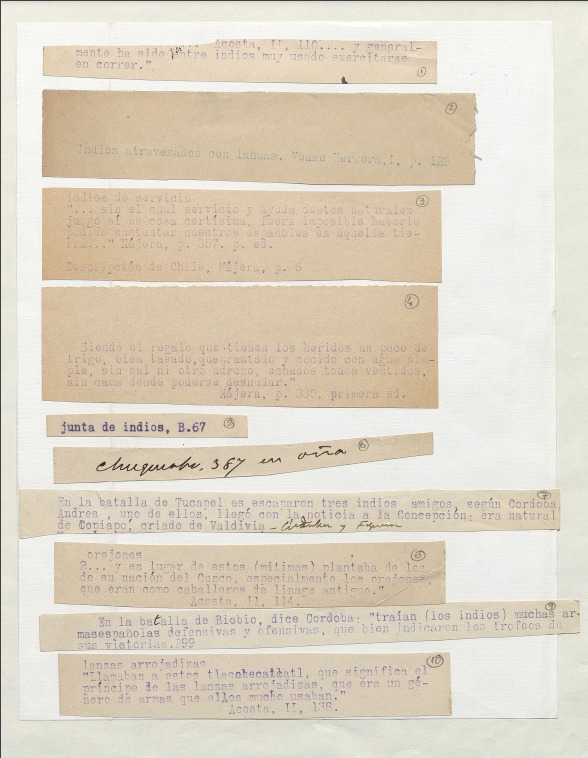 ... Acosta, II, 110.... y general-
mente ha sido por entre indios muy usado exercitarse
en correr.".
1
2
Indios atravesados con lanzas. Vease Herrera,I, p. 125
3
indios de servicio
"... sin el cual servicio y ayuda destos naturales
juzgo si en cosa certísima, fuera imposible haberle
podido sustentar nuestros españoles en aquella tie-
rra..." Nájera, p. 387. p. ed.
Descripción de Chile, Nájera, p. 6
4
Siendo el regalo que tienen los heridos un poco de
trigo, bien tasado, quebrantado y cocido con agua sim-
ple, sin sal ni otro adrezo, echados todos vestidos,
sin cama donde poderse desnudar."
Nájera, p. 330, primera ed.
junta de indios, B.67
5
387 en oña
6
7
En la batalla de Tucapel es escaparon tres indios amigos, según Cordoba
Andres, uno de ellos, llegó con la noticia a la Concepción; era natural
de Copiapó, criado de Valdivia - y Figueroa
8
orejones
2... y en lugar de estos (mitimas) plantaba de los
de su nación del Cuzco, especialmente los orejones,
que eran como caballeros de linage antiguo."
Acosta, II, 114.
9
En la batalla de Biobio, dice Cordoba: "traían (los indios) muchas ar-
masespañolas defensivas y ofensivas, que bien indicaron los trofeos de
sus victorias.299
10
lanzas arrojadizas
"Llamaban a estos tlacohecalcatl, que significa el
príncipe de las lanzas arrojadizas, que era un gé-
nero de armas que ellos mucho usaban."
Acosta, II, 138.